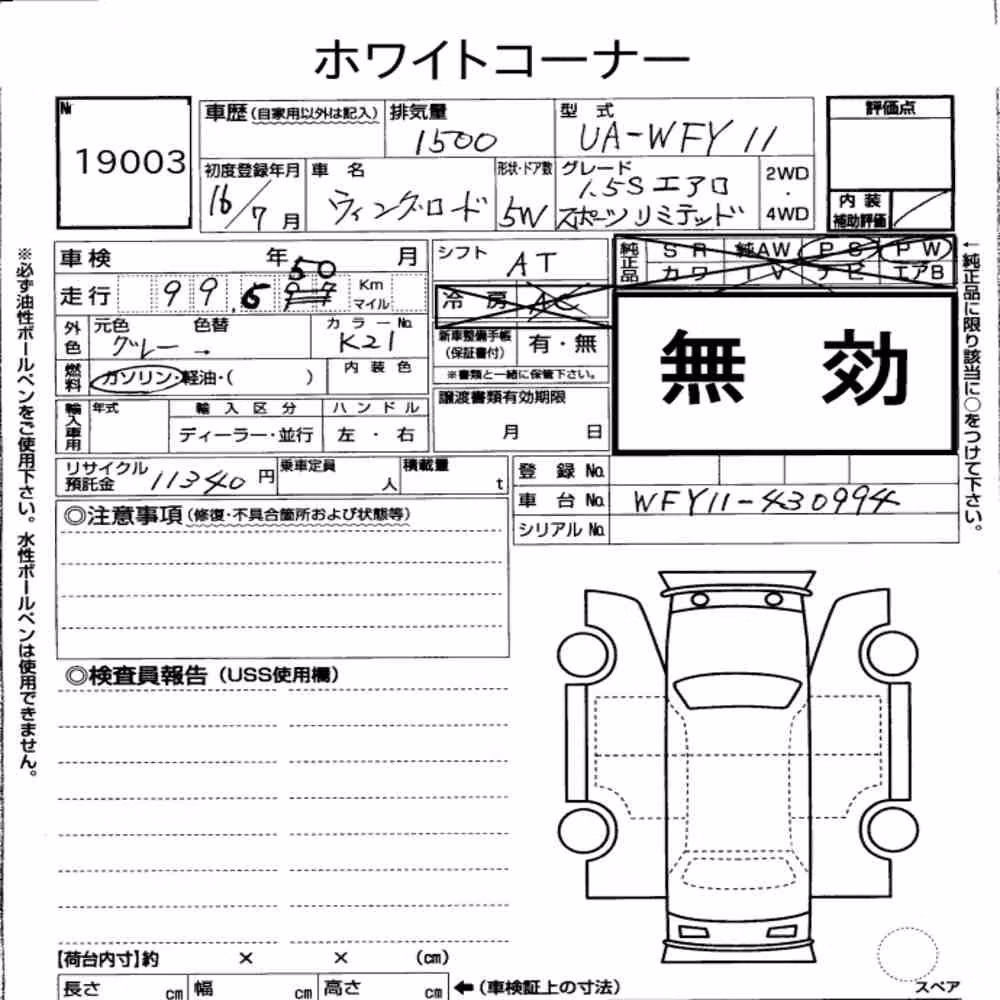 ホワイトコーナー
№
19003
車歴(自家用以外は記入)
排気量
1500
型式
UA-WFY 11
評価点
初度登録年月
16/7月
車名
ウィングロード
形状・ドア数
5W
グレード
1.5S エアロ
スポーツリミテッド
2WD
・
4WD
内装
補助評価
車検 年 月
走行 99,650 Km
マイル
シフト
AT
純正品
SR 純AW PS PW
カワ TV ナビ エアB
冷房 AC
無効
外色
元色 色替
グレー →
カラーNo.
K21
新車整備手帳
(保証書付)
有・無
※書類と一緒に保管下さい。
燃料
ガソリン・軽油・( )
内装色
輸入車用
年式
輸入区分
ディーラー・並行
ハンドル
左・右
譲渡書類有効期限
月 日
リサイクル
預託金
11340円
乗車定員
人
積載量
t
登録No.
車台No. WFY11-430994
シリアルNo.
◎注意事項(修復・不具合箇所および状態等)
◎検査員報告(USS使用欄)
【荷台内寸】約 × × (cm)
長さ cm 幅 cm 高さ cm ←(車検証上の寸法)
スペア
※必ず油性ボールペンをご使用下さい。水性ボールペンは使用できません。
←純正品に限り該当に○をつけて下さい。